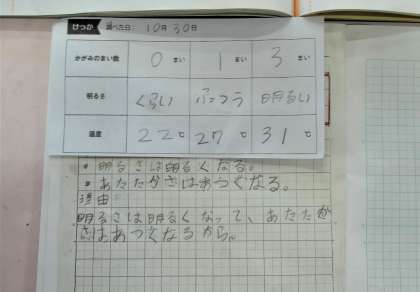 けっか 調べた日 10月30日
かがみのまい数 0まい 1まい 3まい
明るさ くらい ふつう 明るい
温度 22℃ 27℃ 31℃
・明るさは明るくなる。
・あたたかさはあつくなる。
理由
明るさは明るくなって、あたたか
さはあつくなるから。